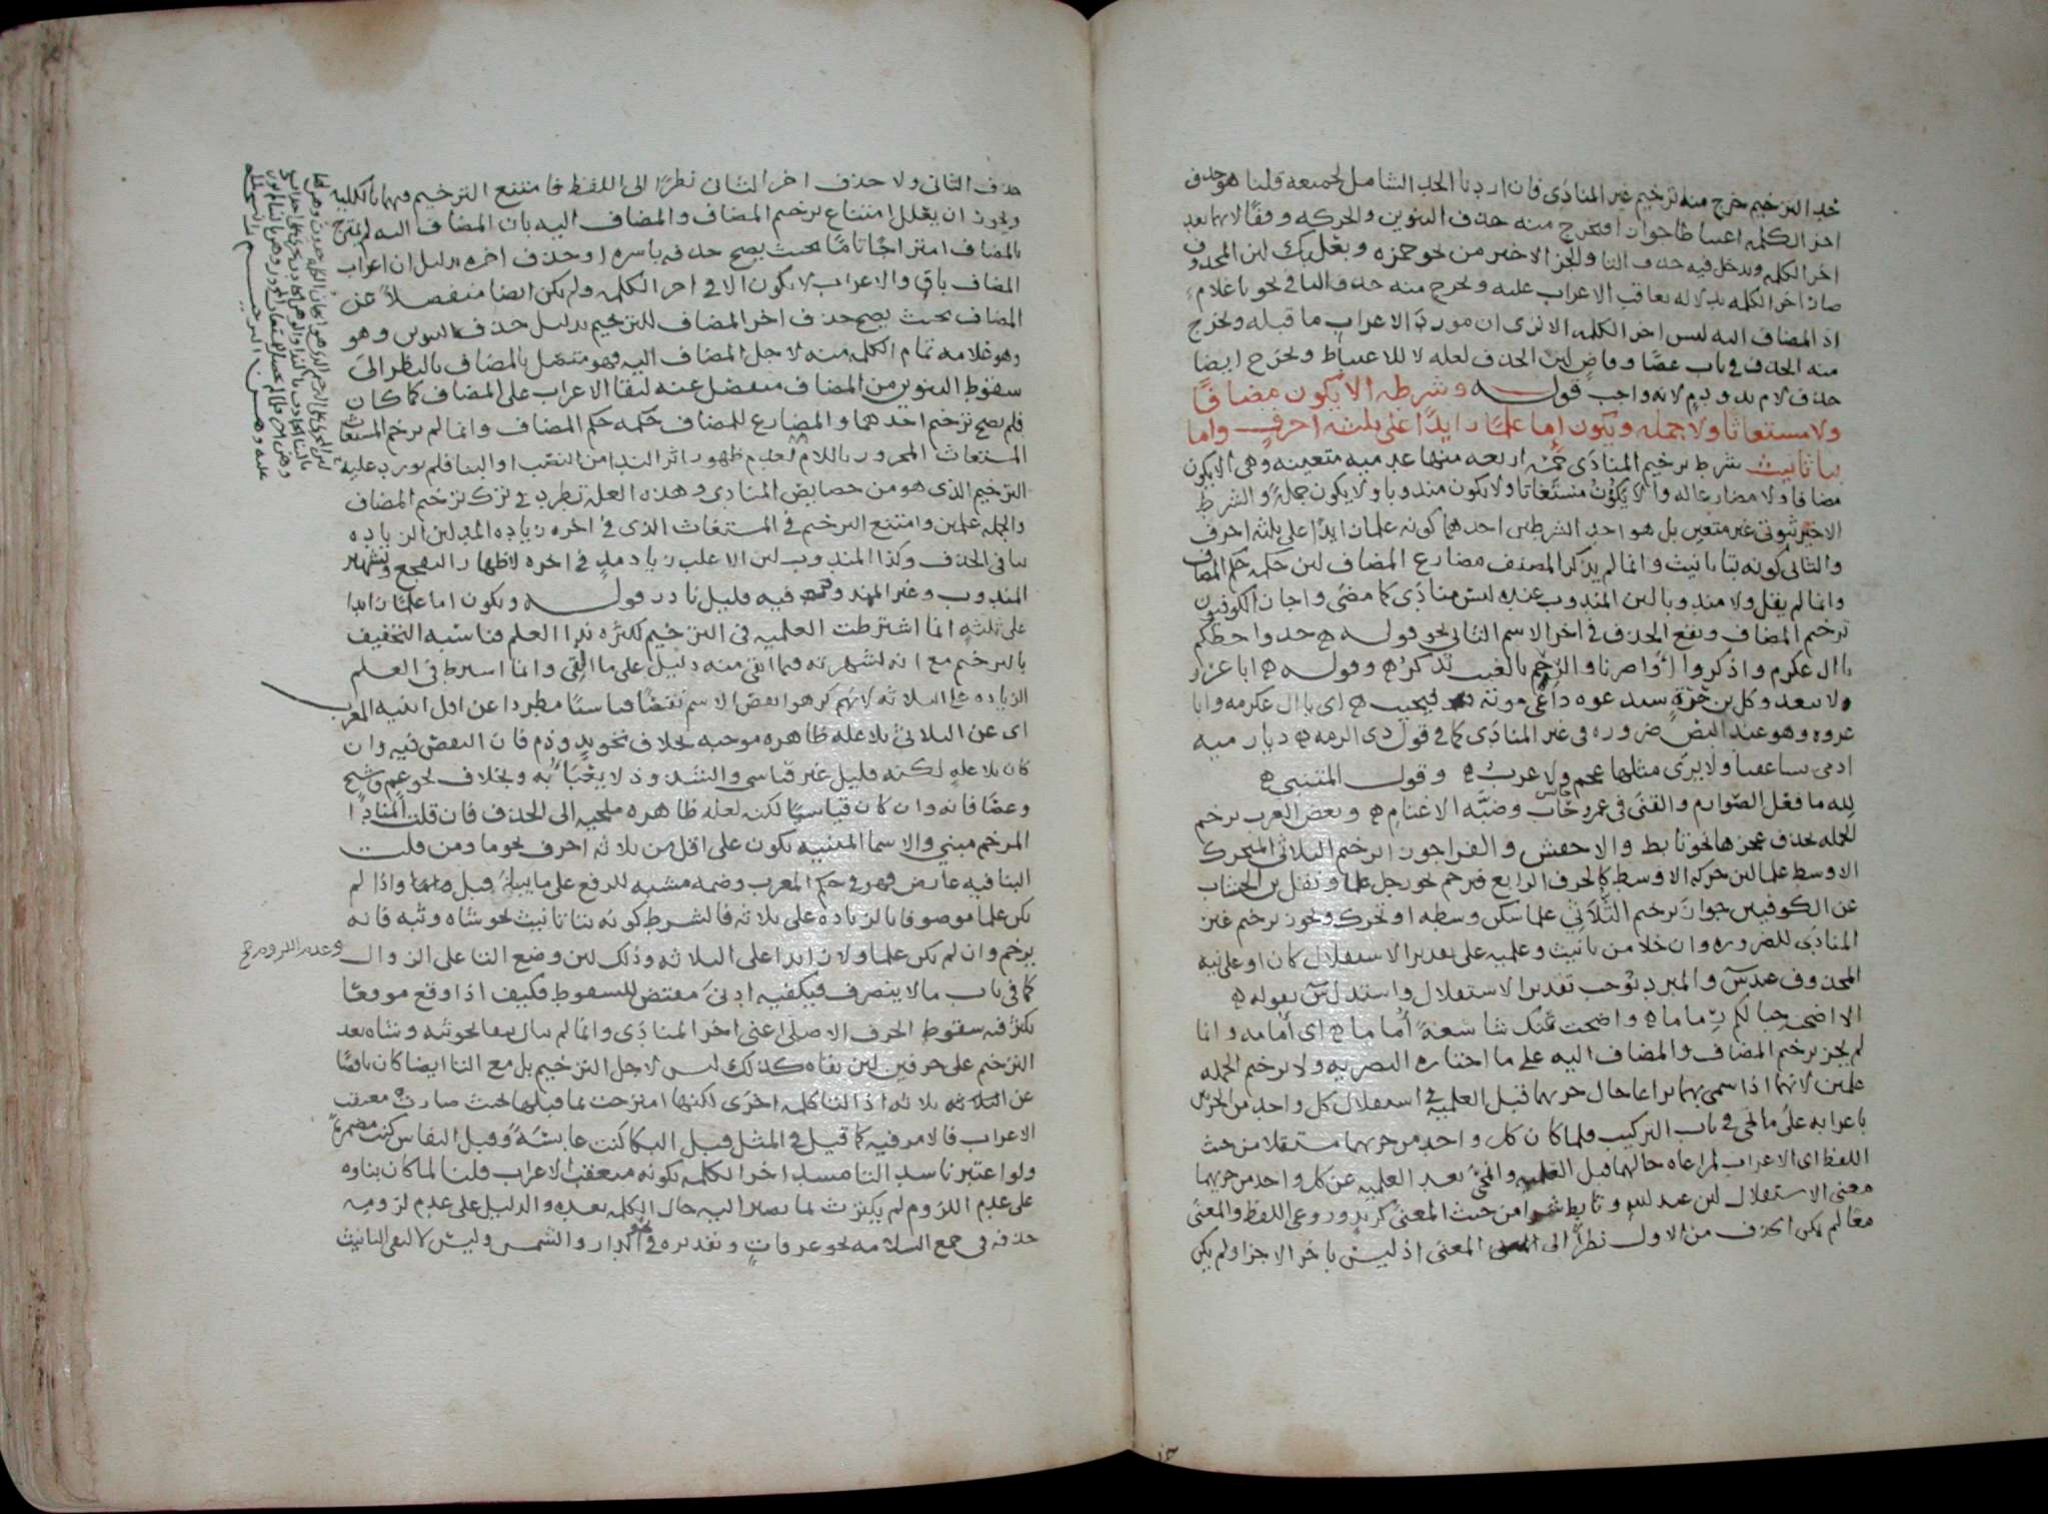 حد الترخيم خرج منه ترخيم غير المنادى فان اردنا الحد الشامل لجميعه قلنا هو حذف
اخر الكلمه اعتباطا جوازا فيخرج منه حذف التنوين والحركه وقفا لانهما بعد
اخر الكلمه ويدخل فيه حذف التا والجز الاخير من نحو حمزه وبعلبك لان المحذوف
صار اخر الكلمه بدلاله تعاقب الاعراب عليه ويخرج منه حذف اليا في نحو يا غلام
اذ المضاف اليه ليس اخر الكلمه الا ترى ان مورد الاعراب ما قبله ويخرج
منه الحذف في باب عصًا وقاضٍ لان الحذف لعله لا للاعتباط ويخرج ايضا
حذف لام يد ودم لانه واجب قوله وشرطه الا يكون مضافًا
ولا مستغاثا ولا جمله ويكون إما علمًا زايدًا على ثلثه احرف واما
بتا تانيث شرط ترخيم المنادى خمسه اربعه منها عدميه متعينه وهى الا يكون
مضافا ولا مضارعا له والا يكون مستغاثا ولا يكون مندوبا ولا يكون جمله والشرط
الاخير ثبوتى غير متعين بل هو احد الشرطين احدهما كونه علما زايدًا على ثلثه احرف
والثانى كونه بتا تانيث وانما لم يذكر المصنف مضارع المضاف لان حكمه حكم المضاف
وانما لم يقل ولا مندوبا لان المندوب عنده ليس منادى كما مضى واجاز الكوفيون
ترخيم المضاف ويقع الحذف في اخر الاسم الثانى نحو قوله خذوا حظكم
يا ال عكرم واذكروا اواصرنا والرحم بالغيب تذكر وقوله ابا عرو
لا تبعد وكل بن حرة سيدعوه داعى موته فيجيب اى يا ال عكرمه ويا ابا
عروه وهو عند البصـ ضروره في غير المنادى كما في قول ذى الرمه ديار ميه
اذ مى تساعفنا ولا يرى مثلها عجم ولا عرب وقول المتنبى
لله ما فعل الصوارم والقنى في عمرو حاب وضبه الاغنام وبعض العرب يرخم
الجمله بحذف عجزها نحو تابط والاخفش والفرا يجوزان ترخيم الثلاثى المتحرك
الاوسط علما لان حركه الاوسط كالحرف الرابع فيرخم نحو رجل علما ونقل بن الخشاب
عن الكوفيين جواز ترخيم الثلاثى علما سكن وسطه او تحرك ويجوز ترخيم غير
المنادى للضروره وان خلا من تانيث وعلميه على تقدير الاستقلال كان او على نيه
المحذوف عند س والمبرد يوجب تقدير الاستقلال واستدل س بقوله
الا اضحت حبالكم رماما واضحت منك شاسعة أُماما اى أمامه وانما
لم يجز ترخيم المضاف والمضاف اليه على ما اختاره البصريه ولا ترخيم الجمله
علمين لانهما اذا سمى بهما يراعا حال جزيهما قبل العلميه في استقلال كل واحد من الجزين
باعرابه على ما يجى في باب التركيب فلما كان كل واحد من جزيهما مستقلا من حيث
اللفظ اى الاعراب لمراعاه حالهما قبل العلميه وانمحى بعد العلميه عن كل واحد من جزيهما
معنى الاستقلال لان عبد الله وتابط شرا من حيث المعنى كزيد وروعى اللفظ والمعنى
معًا لم يمكن الحذف من الاول نظرًا الى المعنى اذ ليس باخر الاجزا ولم يمكن
حذف الثانى ولا حذف اخر الثانى نظرًا الى اللفظ فامتنع الترخيم فيهما بالكليه
ويجوز ان يعلل امتناع ترخيم المضاف والمضاف اليه بان المضاف اليه لم يمتزج
بالمضاف امتزاجًا تامًا بحيث يصح حذفه باسره او حذف اخره بدليل ان اعراب
المضاف باقٍ والاعراب لا يكون الا في اخر الكلمه ولم يكن ايضا منفصلاً عن
المضاف بحيث يصح حذف اخر المضاف للترخيم بدليل حذف التنوين وهو
وهو علامه تمام الكلمه منه لاجل المضاف اليه فهو متصل بالمضاف بالنظر الى
سقوط التنوين من المضاف منفصل عنه لبقا الاعراب على المضاف كما كان
فلم يصح ترخيم احدهما والمضارع للمضاف حكمه حكم المضاف وانما لم يرخم المستغاث
المستغاث المجرور باللام لعدم ظهور اثر الندا من النصب او البنا فلم يورد عليه
الترخيم الذى هو من خصايص المنادى وهذه العله تطرد في ترك ترخيم المضاف
والجمله علمين وامتنع الترخيم في المستغاث الذى في اخره زياده المد لان الزياده
تنافى الحذف وكذا المندوب لان الاغلب زياده مد في اخره لاظهار التفجع وتشهير
المندوب وغير المزيد فيه قليل نادر قوله ويكون اما علمًا زايدا
على ثلثه انما اشترطت العلميه في الترخيم لكثره ندا العلم فناسبه التخفيف
بالترخيم مع انه لشهرته فيما ابقى منه دليل على ما القى وانما اشترط في العلم
الزياده على الثلاثه لانهم كرهوا نقص الاسم نقصًا قياسيًا مطردا عن اقل ابنيه المعرب
اى عن الثلاثى بلا عله ظاهره موجبه بخلاف نحو يد ودم فان النقص فيه وان
كان بلا علهٍ لكنه قليل غير قياسى والشذوذ لا يُعْبَأ به وبخلاف نحو عمٍ وشجٍ
وعصًا فانه وان كان قياسيًا لكن لعله ظاهره ملجيه الى الحذف فان قلت المنادا
المرخم مبنى والاسما المبنيه تكون على اقل من ثلاثه احرف نحو ما ومن قلت
البنا فيه عارض فهو في حكم المعرب وضمه مشبه للرفع على ما بينا قبل واذا لم
يكن علما موصوفا بالزياده على ثلاثه فالشرط كونه بتا تانيث نحو شاه وثبه فانه
يرخم وان لم يكن علما ولا زايدا على الثلاثه وذلك لان وضع التا على الزوال
وعدم اللزوم صح
كما في باب ما لا ينصرف فيكفيه ادنى مقتض للسقوط فكيف اذا وقع موقعًا
يكثر فيه سقوط الحرف الاصلى اعنى اخر المنادى وانما لم يبال ببقا نحو ثبه وشاه بعد
الترخيم على حرفين لان بقاه كذلك ليس لاجل الترخيم بل مع التا ايضا كان ناقصًا
عن الثلاثه اذ التا كلمه اخرى لكنها امتزجت بما قبلها بحيث صارت معتقب
الاعراب فالامر فيه كما قيل في المثل قبل البكا كنت عابسةً وقبل النفاس كنت مصفرةً
ولو اعتبرنا سد التا مسد اخر الكلمه بكونه معتقب الاعراب قلنا لما كان بناوه
على عدم اللزوم لم يكترث لما يصار اليه حال الكلمه بعده والدليل على عدم لزومه
حذفه في جمع السلامه نحو عرفاتٍ وتقديره في نحو الدار والشمس وليس لالف التانيث